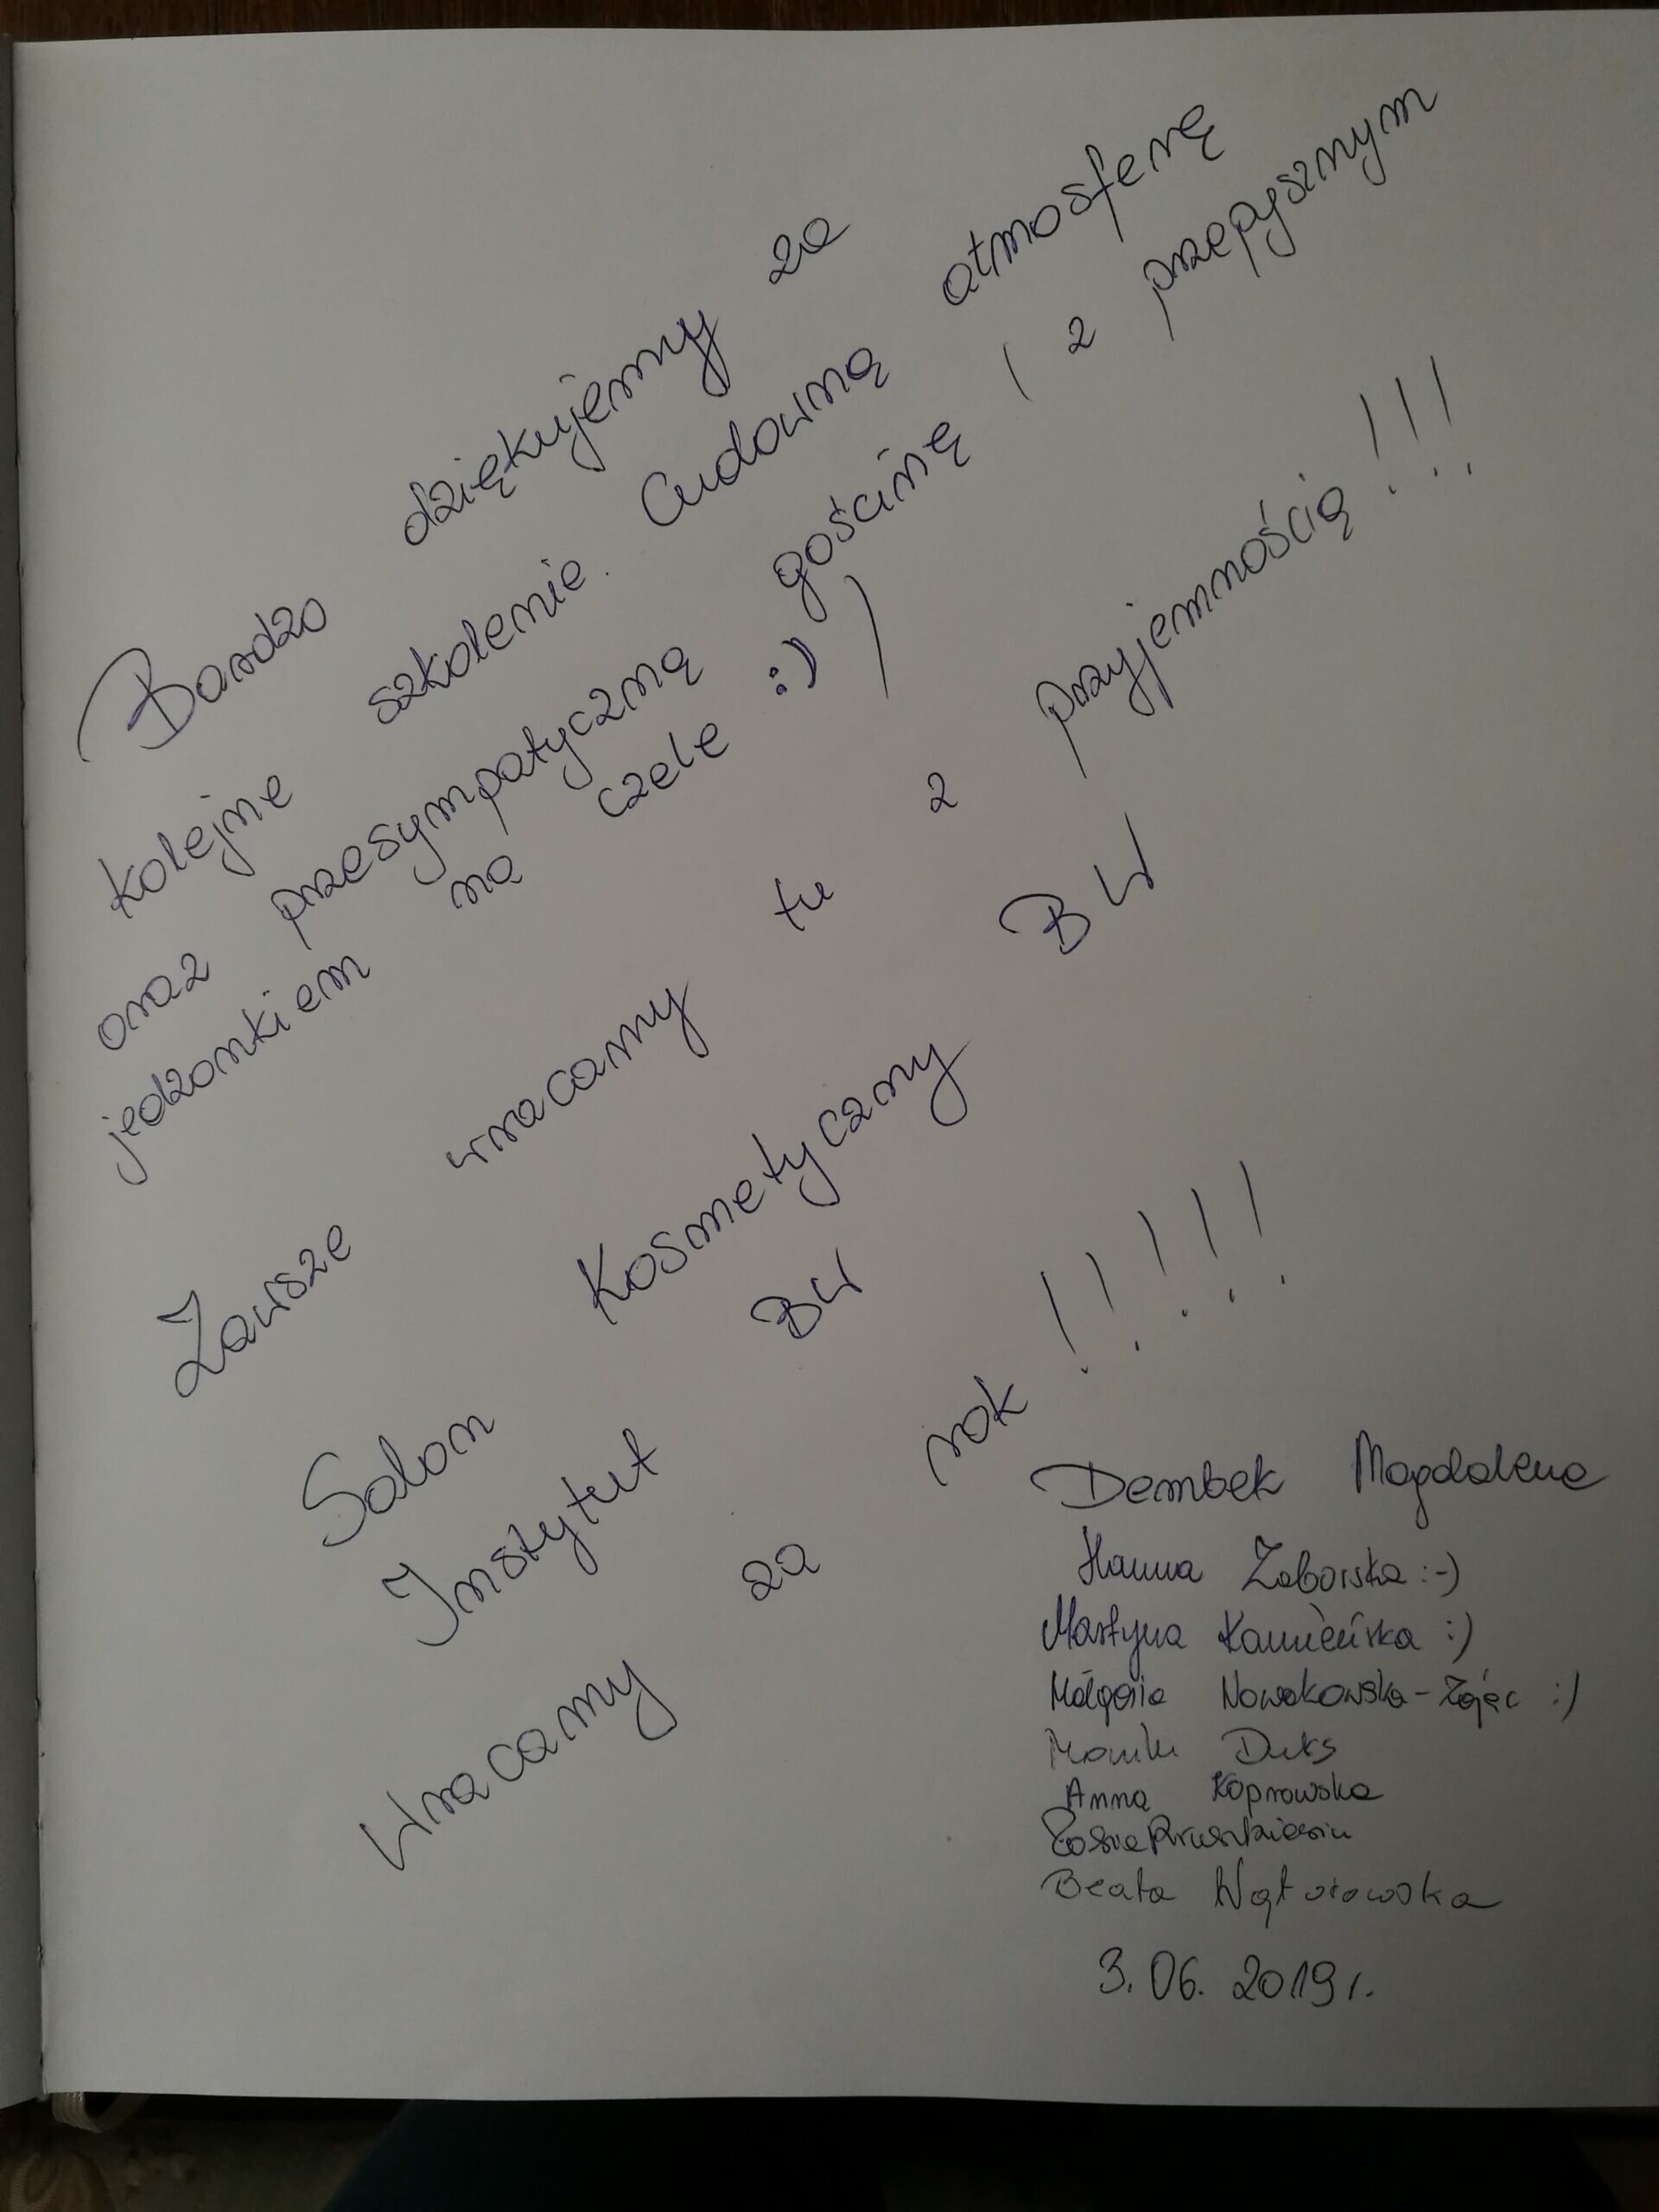 Bardzo dziękujemy za
kolejne szkolenie. Cudowną atmosferę
oraz przesympatyczną gościnę ( z przepysznym
jedzonkiem na czele :) )
Zawsze wracamy tu z przyjemnością!!!
Salon Kosmetyczny BW
Instytut BW
Wracamy za rok !!!!!
Dembek Magdalena
Hanna Zaborska :-)
Martyna Kamieńska :)
Małgosia Nowakowska-Zając :)
Monika Duks
Anna Koprowska
Zosia
Beata Wątorowska
3.06.2019r.